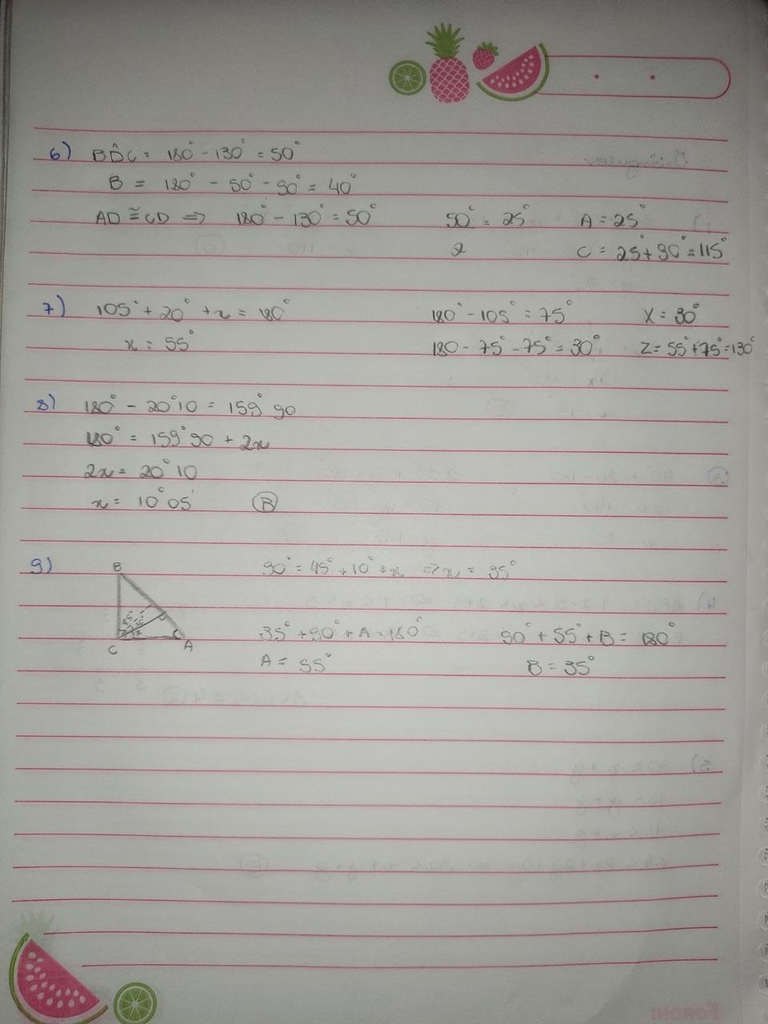 6) BD̂C = 180° - 130° = 50°
B = 180° - 50° - 90° = 40°
AD ≅ CD ⇒ 180° - 130° = 50° 50° = 25° A = 25°
2 C = 25° + 90° = 115°
7) 105° + 20° + x = 180° 180° - 105° = 75° X = 30°
x = 55° 180 - 75° - 75° = 30° Z = 55° + 75° = 130°
8) 180° - 20°10 = 159°90
180° = 159°90 + 2x
2x = 20°10
x = 10°05' (B)
9) B 90° = 45° + 10° + x ⇒ x = 35°
35° + 90° + A = 180° 90° + 55° + B = 180°
C A A = 55° B = 35°